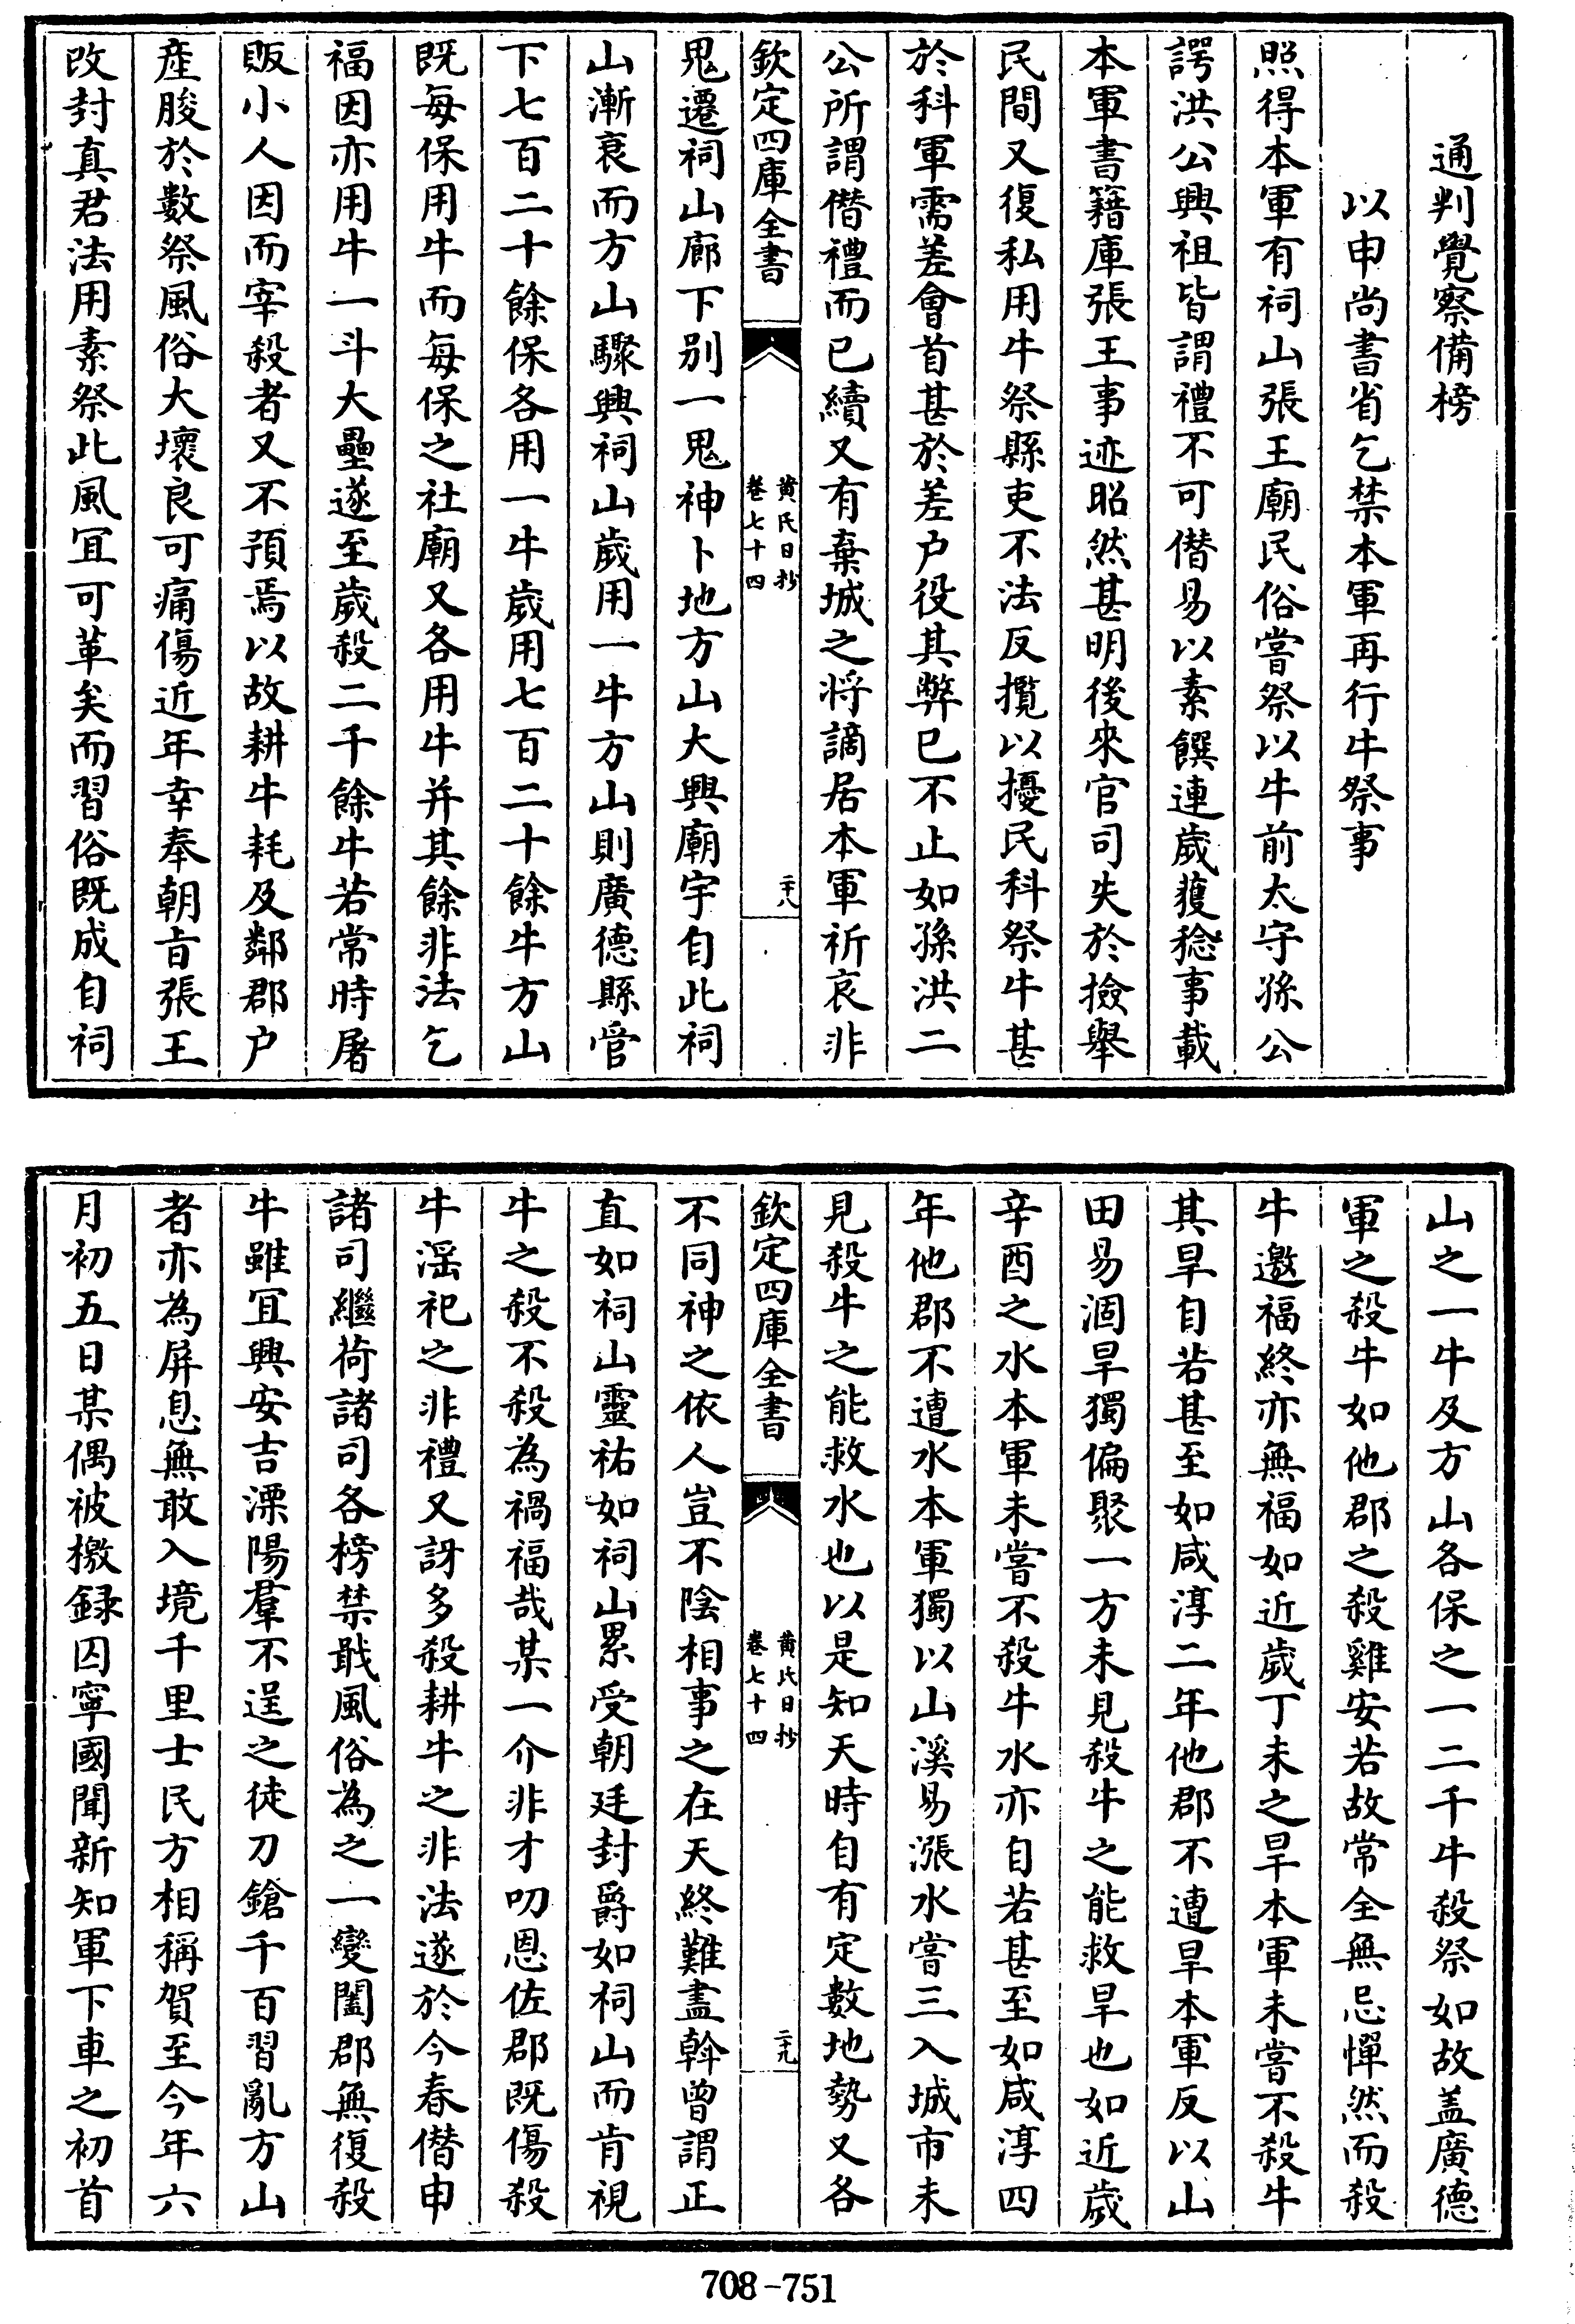 通判覺察備榜
以申尚書省乞禁本軍再行牛祭事
照得本軍有祠山張王廟民俗嘗祭以牛前太守孫公
諤洪公興祖皆謂禮不可僭易以素饌連歲獲稔事載
本軍書籍庫張王事迹昭然甚明後來官司失於撿舉
民間又復私用牛祭縣吏不法反攬以擾民科祭牛甚
於科軍需差會首甚於差户役其弊已不止如孫洪二
公所謂僭禮而已續又有棄城之將謫居本軍祈哀非
欽定四庫全書
黄氏日抄
卷七十四
二十八
鬼遷祠山廊下别一鬼神卜地方山大興廟宇自此祠
山漸衰而方山驟興祠山歲用一牛方山則廣德縣管
下七百二十餘保各用一牛歲用七百二十餘牛方山
既每保用牛而每保之社廟又各用牛并其餘非法乞
福因亦用牛一斗大壘遂至歲殺二千餘牛若常時屠
販小人因而宰殺者又不預焉以故耕牛耗及鄰郡户
產朘於數祭風俗大壞良可痛傷近年幸奉朝旨張王
改封真君法用素祭此風冝可革矣而習俗既成自祠
山之一牛及方山各保之一二千牛殺祭如故盖廣德
軍之殺牛如他郡之殺雞安若故常全無忌憚然而殺
牛邀福終亦無福如近歲丁未之旱本軍未嘗不殺牛
其旱自若甚至如咸淳二年他郡不遭旱本軍反以山
田易涸旱獨偏聚一方未見殺牛之能救旱也如近歲
辛酉之水本軍未嘗不殺牛水亦自若甚至如咸淳四
年他郡不遭水本軍獨以山溪易漲水嘗三入城市未
見殺牛之能救水也以是知天時自有定數地勢又各
欽定四庫全書
黄氏日抄
卷七十四
二十九
不同神之依人豈不陰相事之在天終難盡斡曾謂正
直如祠山靈祐如祠山累受朝廷封爵如祠山而肯視
牛之殺不殺為禍福哉某一介非才叨恩佐郡既傷殺
牛滛祀之非禮又訝多殺耕牛之非法遂於今春僭申
諸司繼荷諸司各榜禁戢風俗為之一變闔郡無復殺
牛雖冝興安吉溧陽羣不逞之徒刀鎗千百習亂方山
者亦為屏息無敢入境千里士民方相稱賀至今年六
月初五日某偶被檄録囚寧國聞新知軍下車之初首
708-751